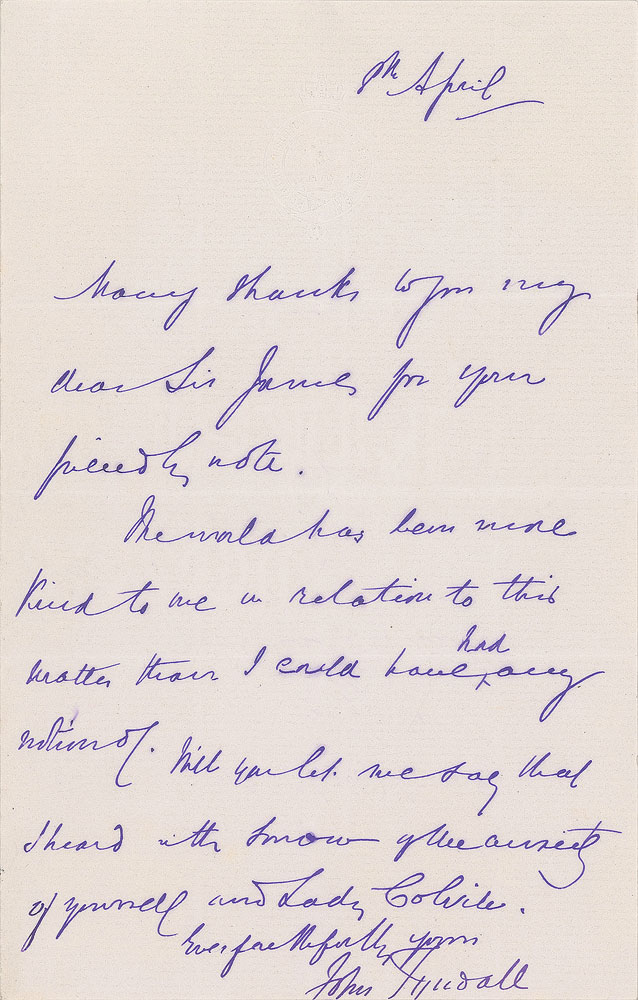 8th April
Many thanks to you my
dear Sir James for your
friendly note.
The world has been more
kind to me in relation to this
matter than I could have had any
notion of. Will you let me say that
I heard with sorrow of the anxiety
of yourself and Lady Colvile.
Ever faithfully yours
John Tyndall